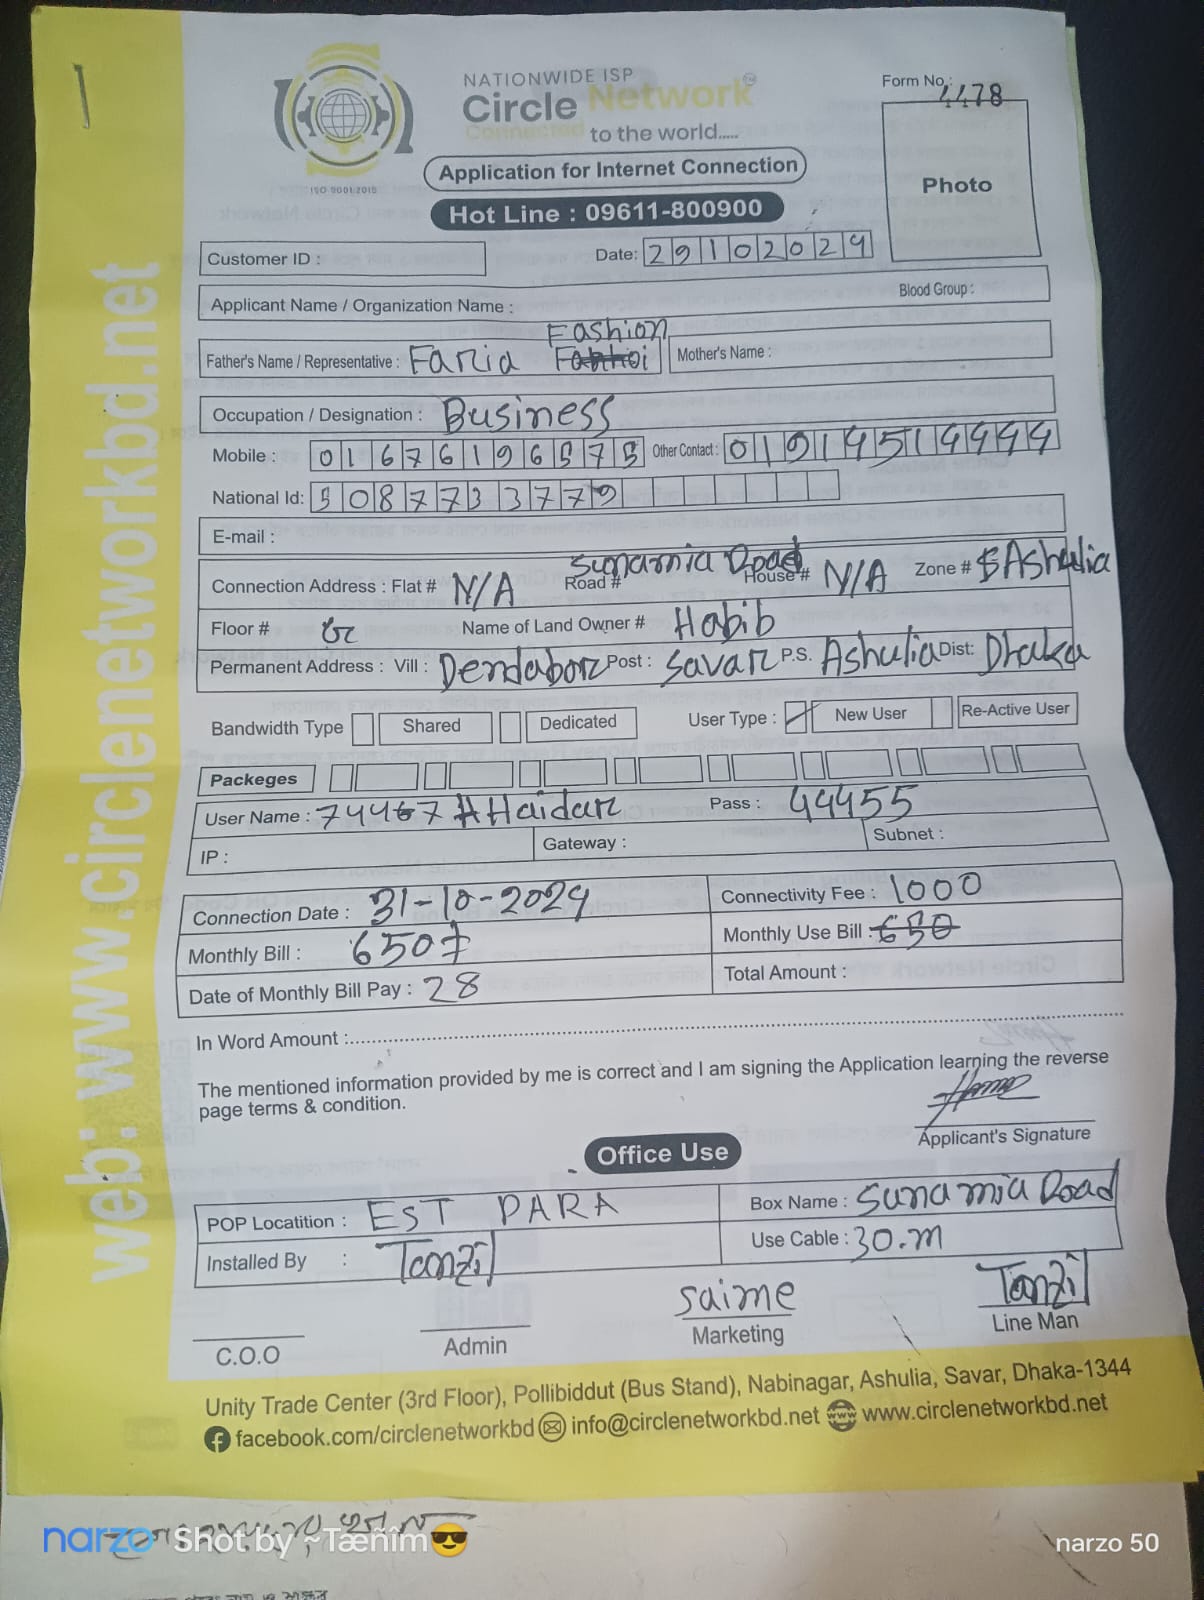 NATIONWIDE ISP
Circle Network
Connected to the world.....
ISO 9001:2015
Form No.: 4478
Application for Internet Connection
Photo
Hot Line : 09611-800900
Customer ID :
Date: 29102024
Applicant Name / Organization Name :
Blood Group :
Fashion
Father's Name / Representative : Faria
Mother's Name :
Occupation / Designation : Business
Mobile : 01676196575 Other Contact : 01914514444
National Id: 5087733779
E-mail :
Sunamia Road
Connection Address : Flat # N/A Road # House # N/A Zone # Ashulia
Floor # G Name of Land Owner # Habib
Permanent Address : Vill : Dendabor Post : Savar P.S. Ashulia Dist: Dhaka
Bandwidth Type Shared Dedicated User Type : New User Re-Active User
Packeges
User Name : 74467 #Haidar Pass : 44455
IP : Gateway : Subnet :
Connection Date : 31-10-2024 Connectivity Fee : 1000
Monthly Bill : 650/- Monthly Use Bill : 650
Date of Monthly Bill Pay : 28 Total Amount :
In Word Amount :
The mentioned information provided by me is correct and I am signing the Application learning the reverse
page terms & condition.
Applicant's Signature
Office Use
POP Locatition : EST PARA Box Name : Sunamia Road
Installed By : Tanzil Use Cable : 30.m
C.O.O
Admin
Saime
Marketing
Tanzil
Line Man
Unity Trade Center (3rd Floor), Pollibiddut (Bus Stand), Nabinagar, Ashulia, Savar, Dhaka-1344
facebook.com/circlenetworkbd info@circlenetworkbd.net www.circlenetworkbd.net
web: www.circlenetworkbd.net
narzo Shot by ~Tæñîm😎
narzo 50